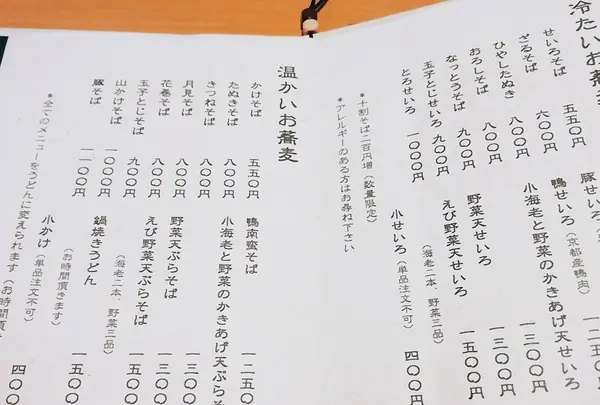 冷たいお蕎
せいろそば 五五〇円
ざるそば 六〇〇円
ひやしたぬき 八〇〇円
おろしそば 八〇〇円
なっとうそば 九〇〇円
玉子とじせいろ 九〇〇円
とろせいろ 一〇〇〇円
豚せいろ
鴨せいろ（京都産鴨肉） 一二五〇
小海老と野菜のかきあげ天せいろ 一三〇〇
野菜天せいろ 一三〇〇円
えび野菜天せいろ 一五〇〇円
（海老二本、野菜三品）
小せいろ（単品注文不可） 四〇〇円
＊十割そば二百円増（数量限定）
＊アレルギーのある方はお尋ね下さい
温かいお蕎麦
かけそば 五五〇円
たぬきそば 八〇〇円
きつねそば 八〇〇円
月見そば 八〇〇円
花巻そば 八〇〇円
玉子とじそば 九〇〇円
山かけそば 一〇〇〇円
豚そば 一一〇〇円
鴨南蛮そば 一二五〇
小海老と野菜のかきあげ天ぷら
野菜天ぷらそば 一三〇〇
えび野菜天ぷらそば 一五〇〇
（海老二本、野菜三品）
鍋焼きうどん 一五〇
（お時間頂きます）
小かけ（単品注文不可） 四〇〇
＊全てのメニューをうどんに変えられます（お時間頂